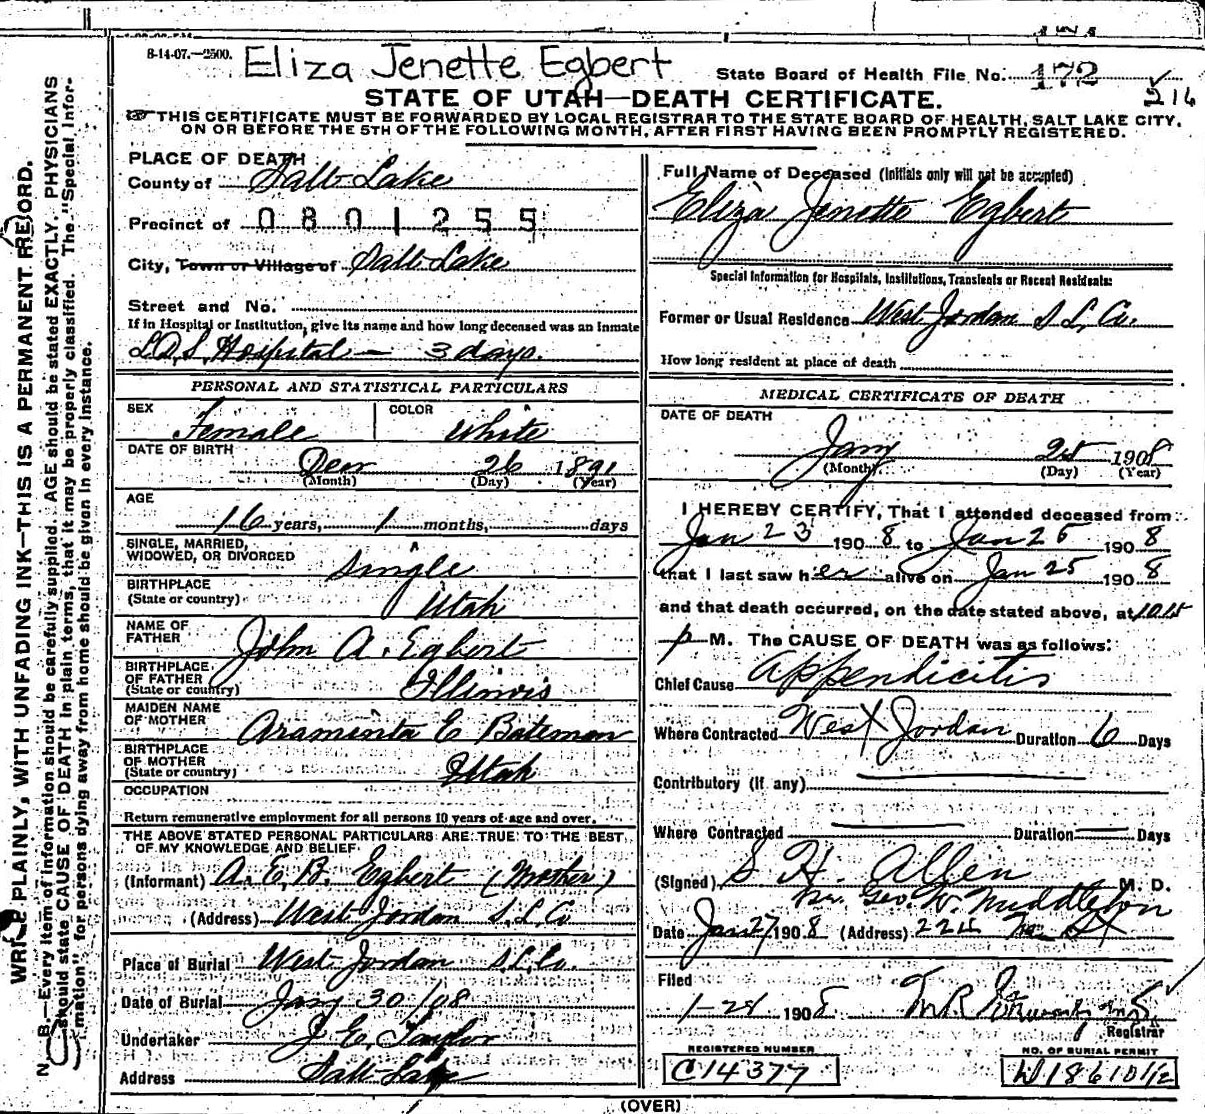 8-14-07.—2500. Eliza Jenette Egbert State Board of Health File No. 172
216
STATE OF UTAH—DEATH CERTIFICATE.
THIS CERTIFICATE MUST BE FORWARDED BY LOCAL REGISTRAR TO THE STATE BOARD OF HEALTH, SALT LAKE CITY,
ON OR BEFORE THE 5TH OF THE FOLLOWING MONTH, AFTER FIRST HAVING BEEN PROMPTLY REGISTERED.
WRITE PLAINLY, WITH UNFADING INK—THIS IS A PERMANENT RECORD.
N. B.—Every item of information should be carefully supplied. AGE should be stated EXACTLY. PHYSICIANS
should state CAUSE OF DEATH in plain terms, that it may be properly classified. The "Special Infor-
mation" for persons dying away from home should be given in every instance.
PLACE OF DEATH
County of Salt Lake
Precinct of 0801255
City, Town or Village of Salt Lake
Street and No.
If in Hospital or Institution, give its name and how long deceased was an inmate
L.D.S. Hospital — 3 days.
PERSONAL AND STATISTICAL PARTICULARS
SEX Female COLOR White
DATE OF BIRTH
26 1891
(Month) (Day) (Year)
AGE
16 years, 1 months, days
SINGLE, MARRIED,
WIDOWED, OR DIVORCED Single
BIRTHPLACE
(State or country) Utah
NAME OF
FATHER John A. Egbert
BIRTHPLACE
OF FATHER
(State or country) Illinois
MAIDEN NAME
OF MOTHER Araminta E Bateman
BIRTHPLACE
OF MOTHER
(State or country) Utah
OCCUPATION
Return remunerative employment for all persons 10 years of age and over.
THE ABOVE STATED PERSONAL PARTICULARS ARE TRUE TO THE BEST
OF MY KNOWLEDGE AND BELIEF
(Informant) A. E. B. Egbert (Mother)
(Address) West Jordan S.L. Co
Place of Burial West Jordan S.L. Co.
Date of Burial Jany 30/08
Undertaker J E. Taylor
Address Salt Lake
Full Name of Deceased (Initials only will not be accepted)
Eliza Jenette Egbert
Special Information for Hospitals, Institutions, Transients or Recent Residents:
Former or Usual Residence West Jordan S L. Co.
How long resident at place of death
MEDICAL CERTIFICATE OF DEATH
DATE OF DEATH
Jany 25 1908
(Month) (Day) (Year)
I HEREBY CERTIFY, That I attended deceased from
Jan 23 1908 to Jan 25 1908
that I last saw her alive on Jan 25 1908
and that death occurred, on the date stated above, at 10 15
p M. The CAUSE OF DEATH was as follows:
Chief Cause Appendicitis
Where Contracted West Jordan Duration 6 Days
Contributory (if any)
Where Contracted Duration Days
(Signed) S H. Allen M. D.
Geo. W. Middleton
Date Jan 27 1908 (Address)
Filed
1908
Registrar
REGISTERED NUMBER
C14377
NO. OF BURIAL PERMIT
W18610 1/2
(OVER)